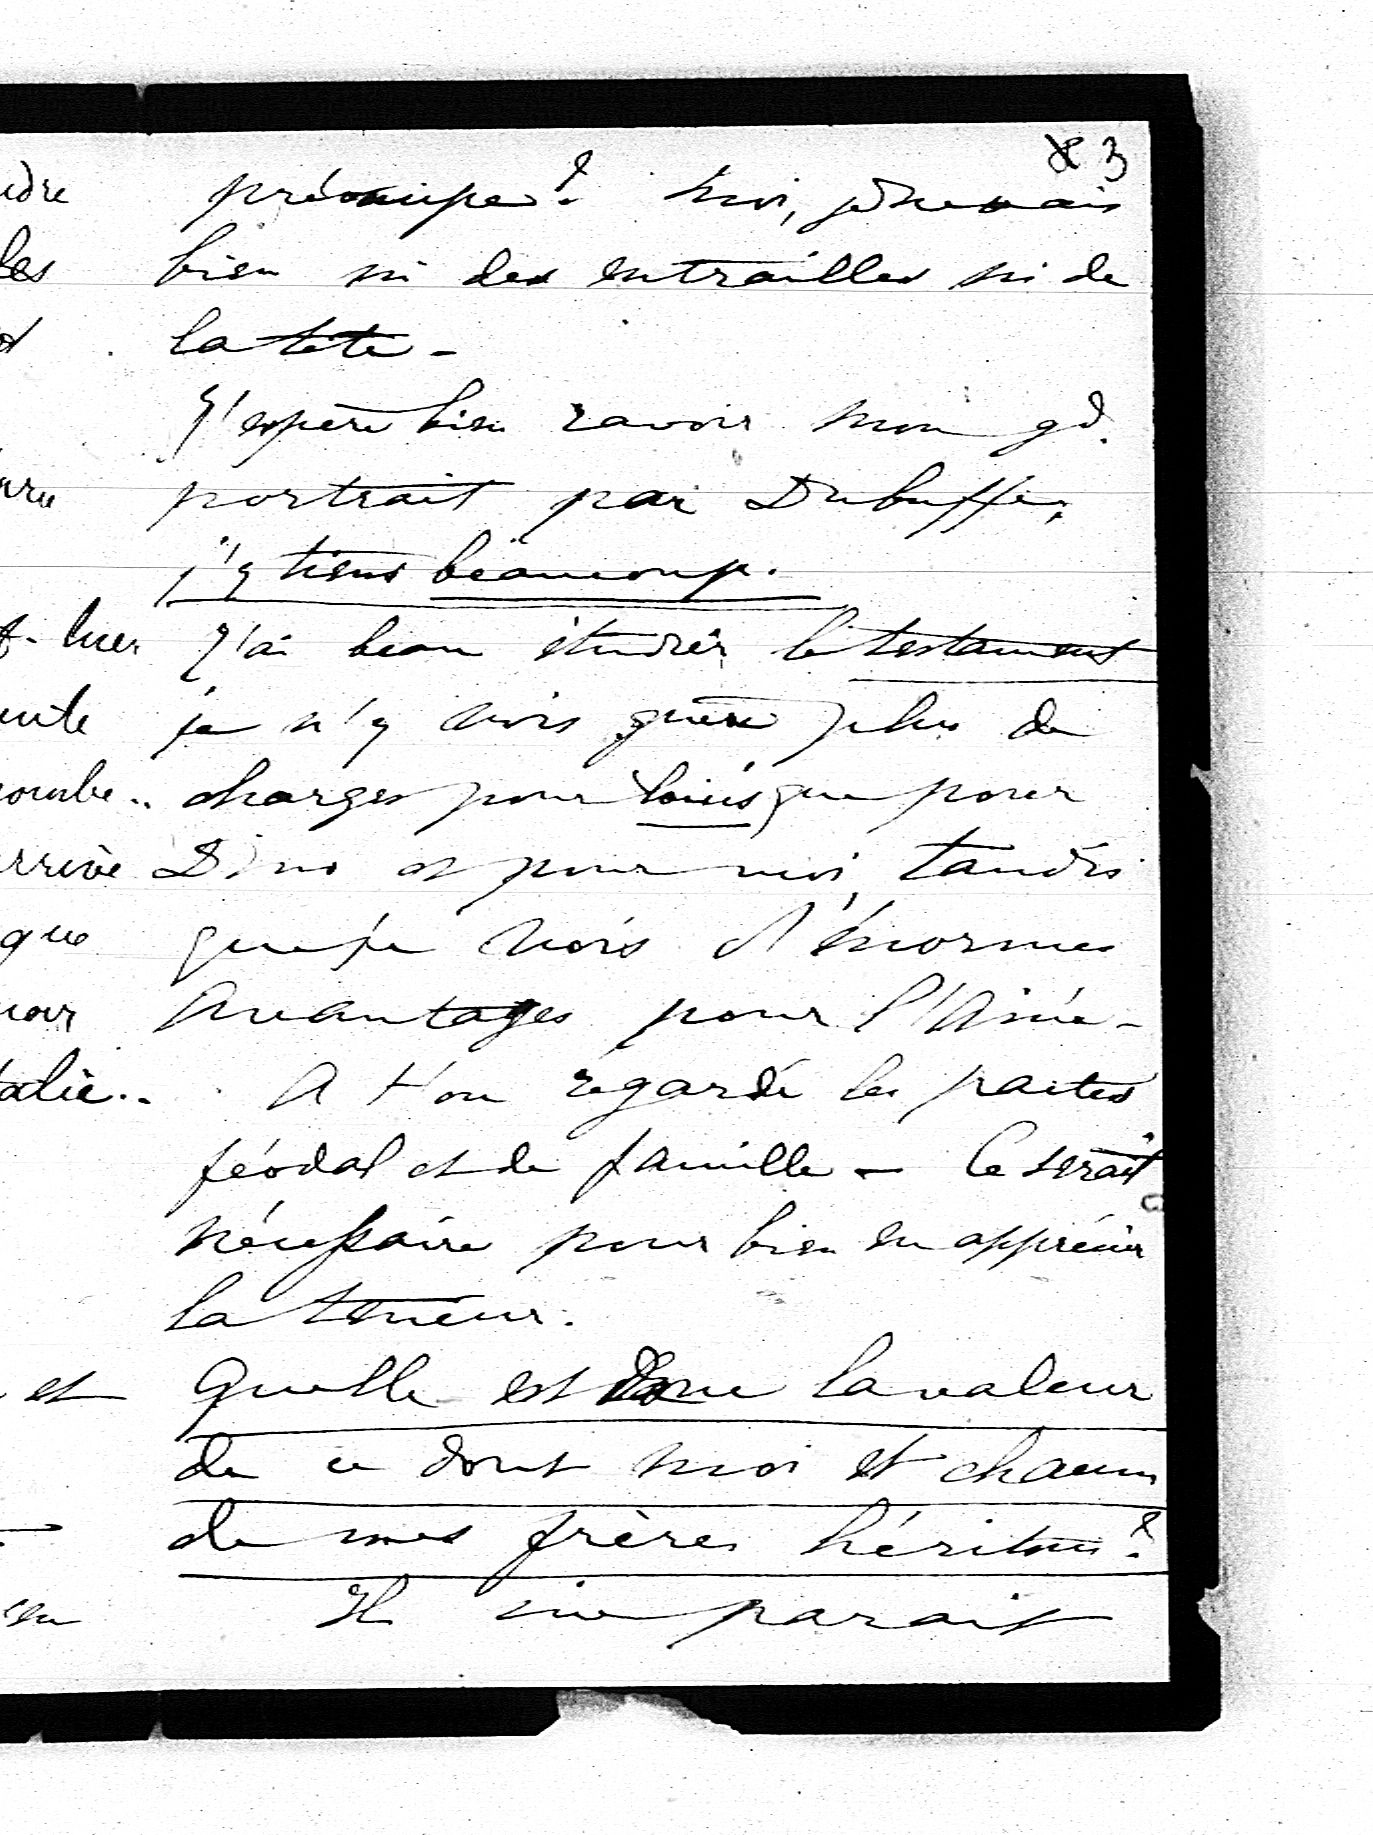 3
préoccupe? Moi, je ne vais
bien ni des entrailles ni de
la tête -
J'espère bien ravoir mon gd.
portrait par Dubuffe,
j'y tiens beaucoup.
J'ai beau étudier le testament
je n'y vois guère plus de
charges pour Louis que pour
Dino et pour moi, tandis
que je vois d'énormes
avantages pour l'Ainé -
A t'on regardé les pactes
féodal et de famille - Ce serait
nécessaire pour bien en apprécier
la teneur.
Quelle est donc la valeur
de ce dont moi et chacun
de mes frères héritons?
Il me parait
udre
les
f. hier
ente
combe..
rrive
que
talie..
et